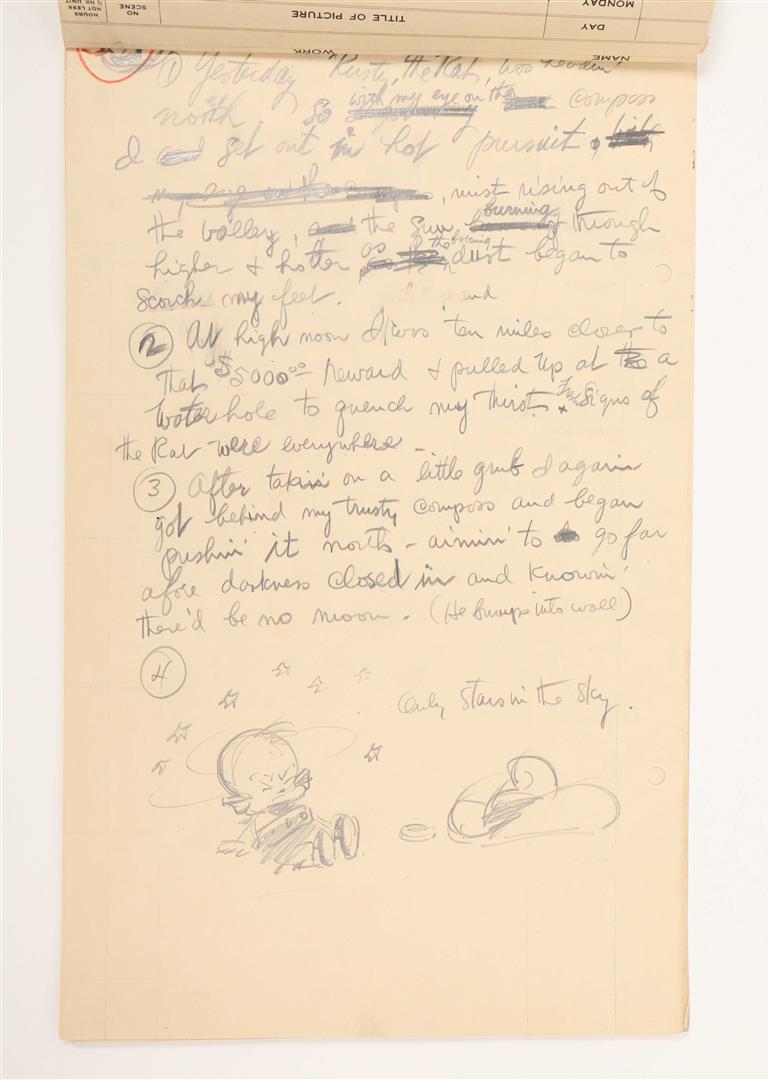 HOURS
NOT LESS
½ HR UNIT
SCENE
NO
TITLE OF PICTURE
MONDAY
DAY
WORK
NAME
① Yesterday Rusty, the Rat, was headin'
north. So with my eye on the compass
I set out in hot pursuit,
mist rising out of
the valley, the sun burning through
higher & hotter as the baking dust began to
scorch my feet. and
② At high noon I was ten miles closer to
that $5000⁰⁰ reward & pulled up at a
waterhole to quench my thirst & Fresh signs of
the Rat were everywhere –
③ After takin' on a little grub I again
got behind my trusty compass and began
pushin' it north – aimin' to go far
afore darkness closed in and knowin'
there'd be no moon. (He bumps into wall)
④
Only stars in the sky.